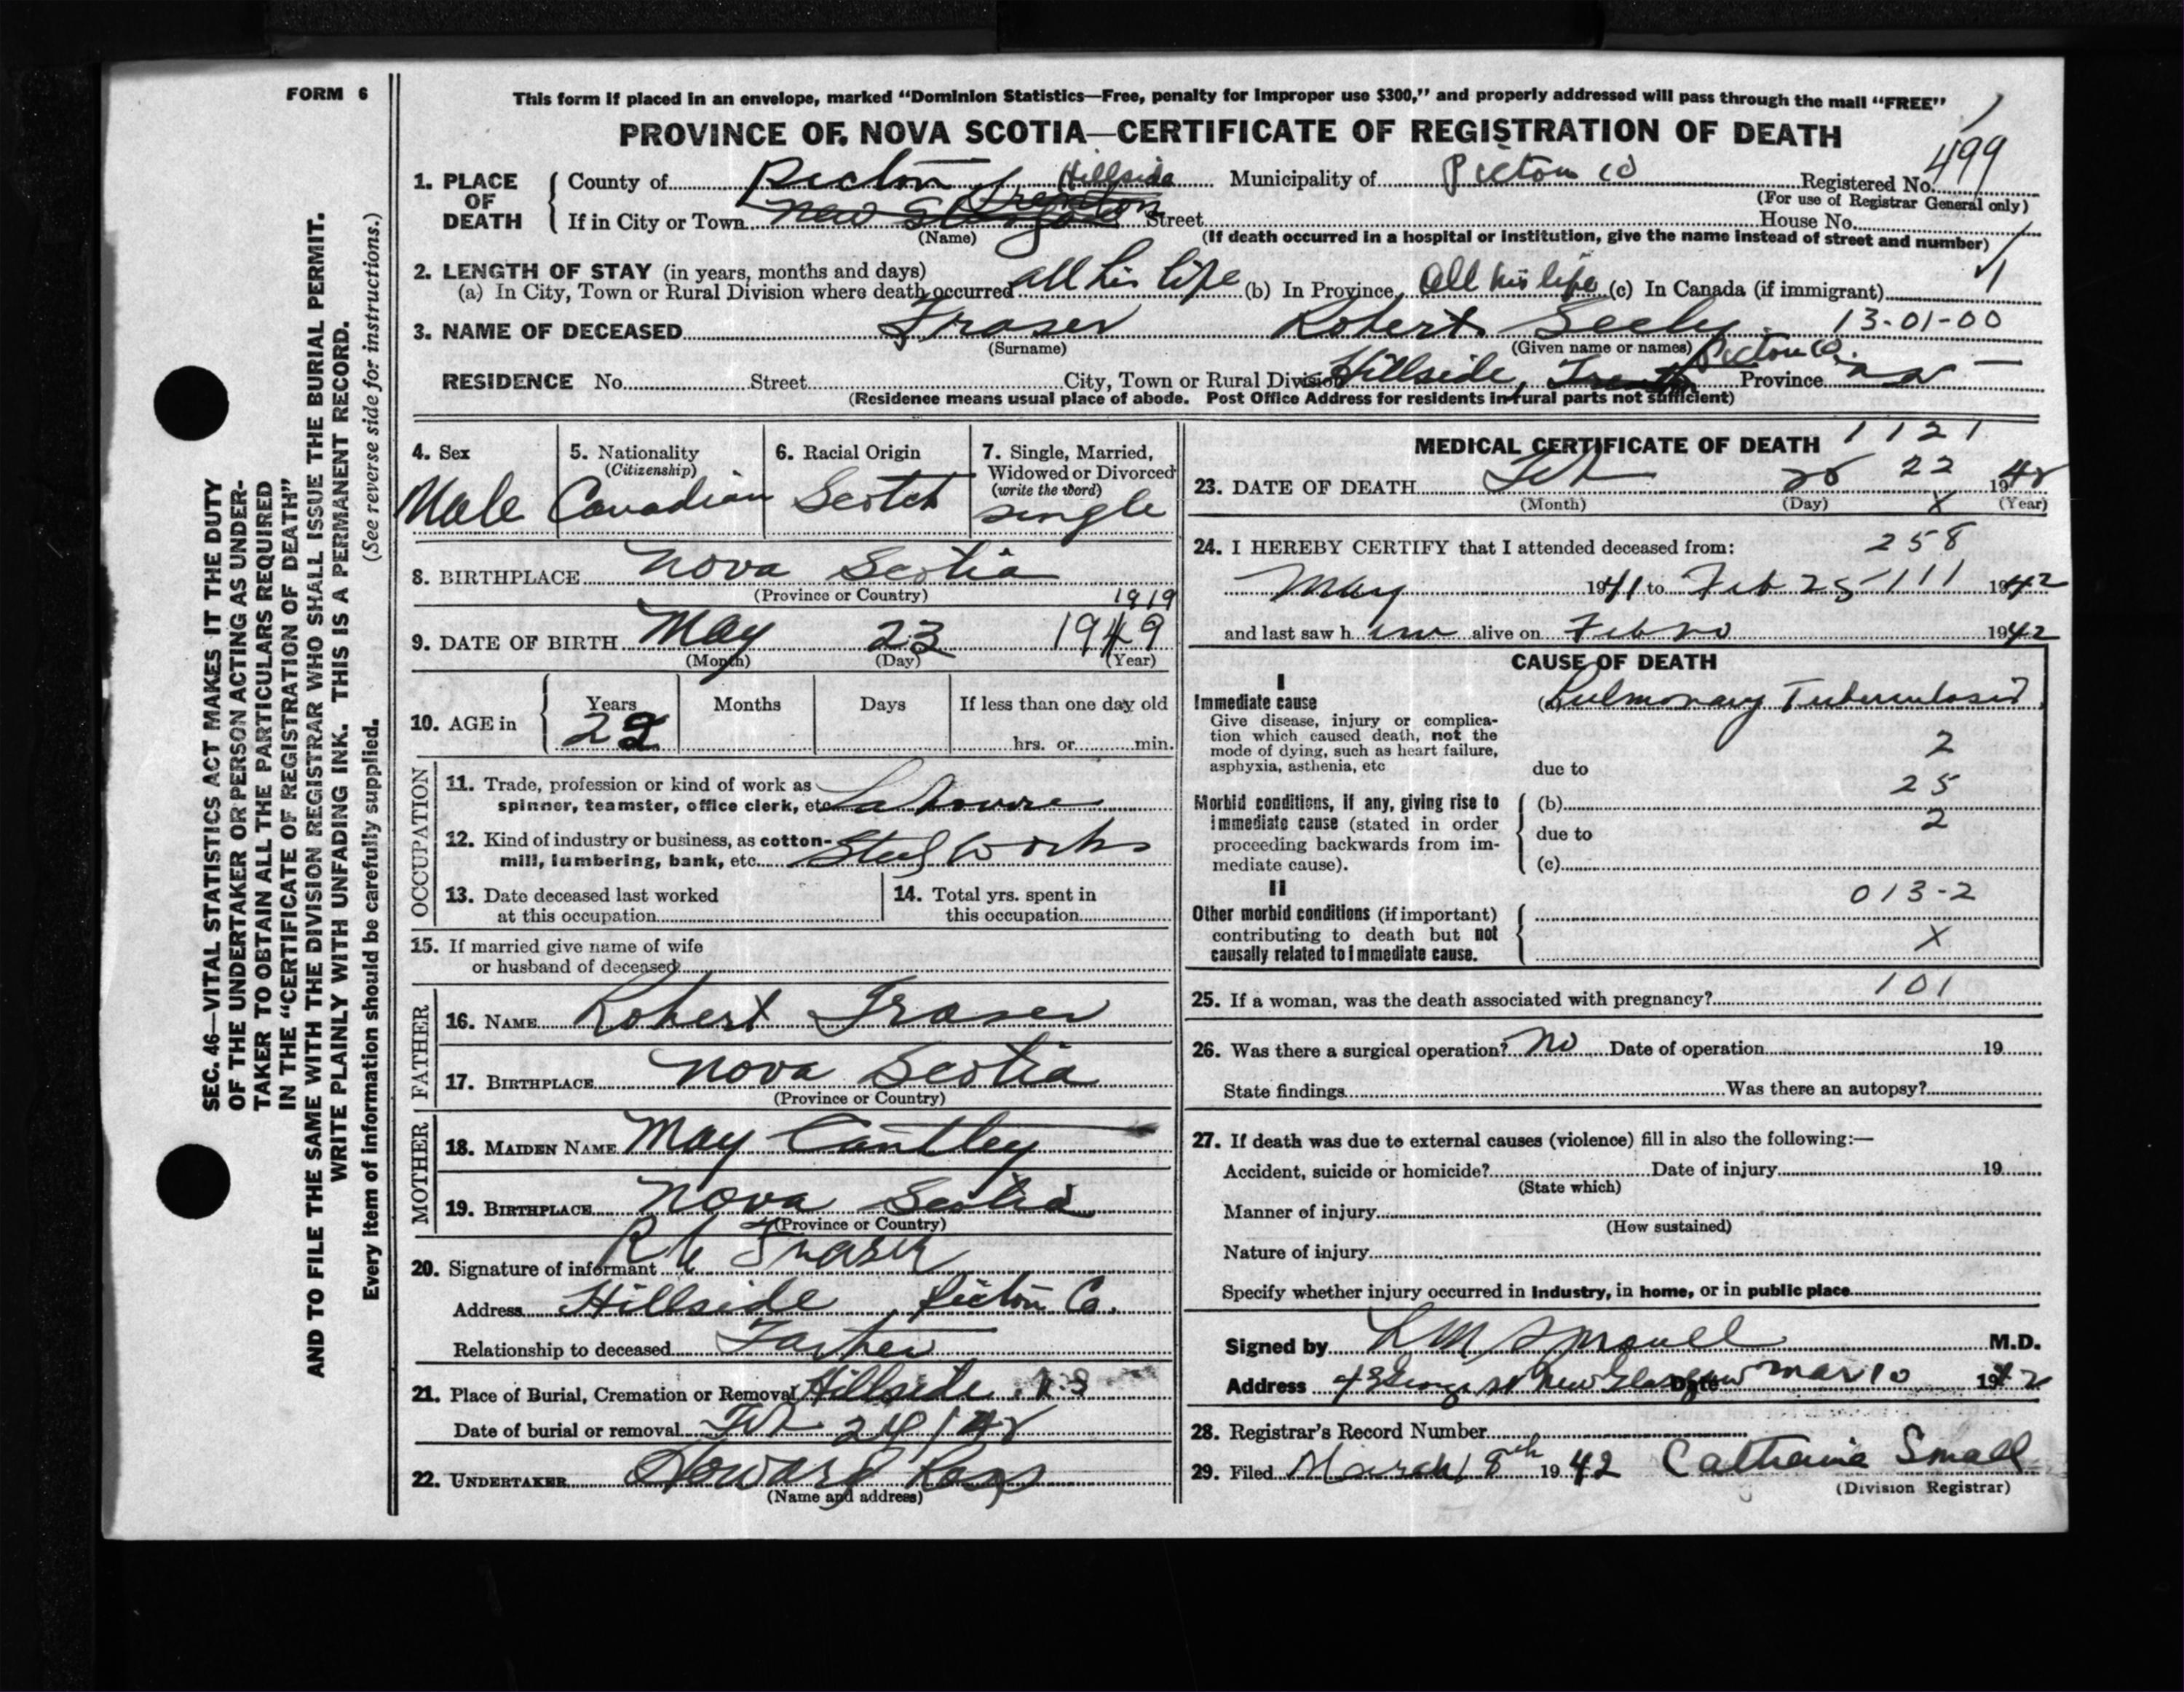 FORM 6
This form if placed in an envelope, marked “Dominion Statistics—Free, penalty for improper use $300,” and properly addressed will pass through the mail “FREE”
PROVINCE OF NOVA SCOTIA—CERTIFICATE OF REGISTRATION OF DEATH
1. PLACE OF DEATH
County of Pictou Hillside Municipality of Pictou Co Registered No. 499
(For use of Registrar General only)
If in City or Town New Glasgow Trenton Street House No.
(Name) (If death occurred in a hospital or institution, give the name instead of street and number)
2. LENGTH OF STAY (in years, months and days)
(a) In City, Town or Rural Division where death occurred all his life (b) In Province All his life (c) In Canada (if immigrant)
3. NAME OF DECEASED Fraser Robert Seely 13-01-00
(Surname) (Given name or names)
RESIDENCE No. Street City, Town or Rural Division Hillside, Trenton Pictou Co. Province NS
(Residence means usual place of abode. Post Office Address for residents in rural parts not sufficient)
4. Sex Male
5. Nationality (Citizenship) Canadian
6. Racial Origin Scotch
7. Single, Married, Widowed or Divorced (write the word) single
8. BIRTHPLACE Nova Scotia
(Province or Country)
1919
9. DATE OF BIRTH May 23 1919
(Month) (Day) (Year)
10. AGE in Years Months Days If less than one day old
22 hrs. or min.
OCCUPATION
11. Trade, profession or kind of work as spinner, teamster, office clerk, etc.
12. Kind of industry or business, as cotton-mill, lumbering, bank, etc. Steel Works
13. Date deceased last worked at this occupation
14. Total yrs. spent in this occupation
15. If married give name of wife or husband of deceased
FATHER
16. NAME Robert Fraser
17. BIRTHPLACE Nova Scotia
(Province or Country)
MOTHER
18. MAIDEN NAME May Cantley
19. BIRTHPLACE Nova Scotia
(Province or Country)
20. Signature of informant Fraser
Address Hillside, Pictou Co.
Relationship to deceased Father
21. Place of Burial, Cremation or Removal Hillside N.S
Date of burial or removal Feb 24/42
22. UNDERTAKER Howard
(Name and address)
MEDICAL CERTIFICATE OF DEATH 1121
23. DATE OF DEATH Feb 22 1942
(Month) (Day) X (Year)
24. I HEREBY CERTIFY that I attended deceased from: 258
May 1941 to Feb 25 111 1942
and last saw h im alive on Feb 20 1942
CAUSE OF DEATH
I
Immediate cause
Give disease, injury or complication which caused death, not the mode of dying, such as heart failure, asphyxia, asthenia, etc
Pulmonary Tuberculosis
2
due to
25
Morbid conditions, if any, giving rise to immediate cause (stated in order proceeding backwards from immediate cause).
(b)
2
due to
(c)
II
013-2
Other morbid conditions (if important) contributing to death but not causally related to immediate cause.
X
101
25. If a woman, was the death associated with pregnancy?
26. Was there a surgical operation? No Date of operation 19
State findings Was there an autopsy?
27. If death was due to external causes (violence) fill in also the following:—
Accident, suicide or homicide? Date of injury 19
(State which)
Manner of injury
(How sustained)
Nature of injury
Specify whether injury occurred in industry, in home, or in public place
Signed by M.D.
Address George St New Glasgow Date Mar 10 1942
28. Registrar’s Record Number
29. Filed March 8th 1942 Small
(Division Registrar)
SEC. 46—VITAL STATISTICS ACT MAKES IT THE DUTY
OF THE UNDERTAKER OR PERSON ACTING AS UNDER-
TAKER TO OBTAIN ALL THE PARTICULARS REQUIRED
IN THE “CERTIFICATE OF REGISTRATION OF DEATH”
AND TO FILE THE SAME WITH THE DIVISION REGISTRAR WHO SHALL ISSUE THE BURIAL PERMIT.
WRITE PLAINLY WITH UNFADING INK. THIS IS A PERMANENT RECORD.
Every item of information should be carefully supplied. (See reverse side for instructions.)